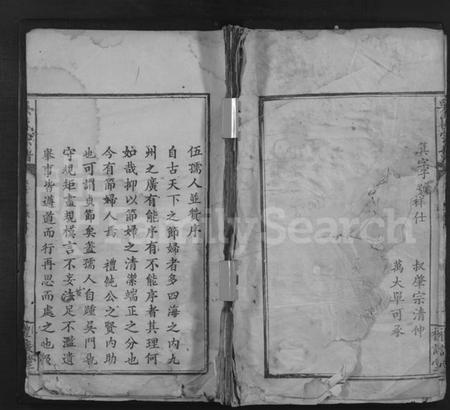 真字號祥仕
叔肇宗清仲
萬大單可承
伍孺人並贊序
自古天下之節婦者多四海之內九
州之廣有能序有不能序者其理何
如哉抑以節婦之清潔端正之分也
今有節婦人焉 禮純公之賢內助
也可謂貞節矣蓋孺人自踵吳門克
守規矩盡規慌言不妄法足不濫遺
舉事皆遵道而行再思而處之也
FamilySearch